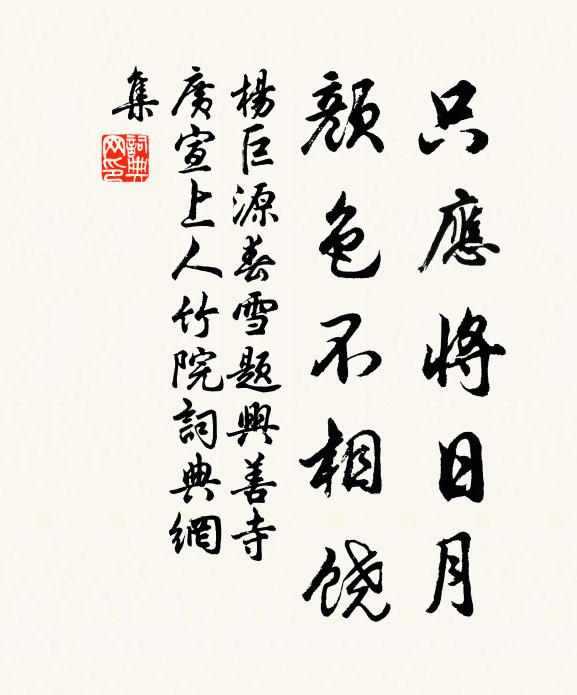 只應將日月
顔色不相饶
楊巨源春雪題興善寺
廣宣上人竹院詞典網
集
詞典
网印